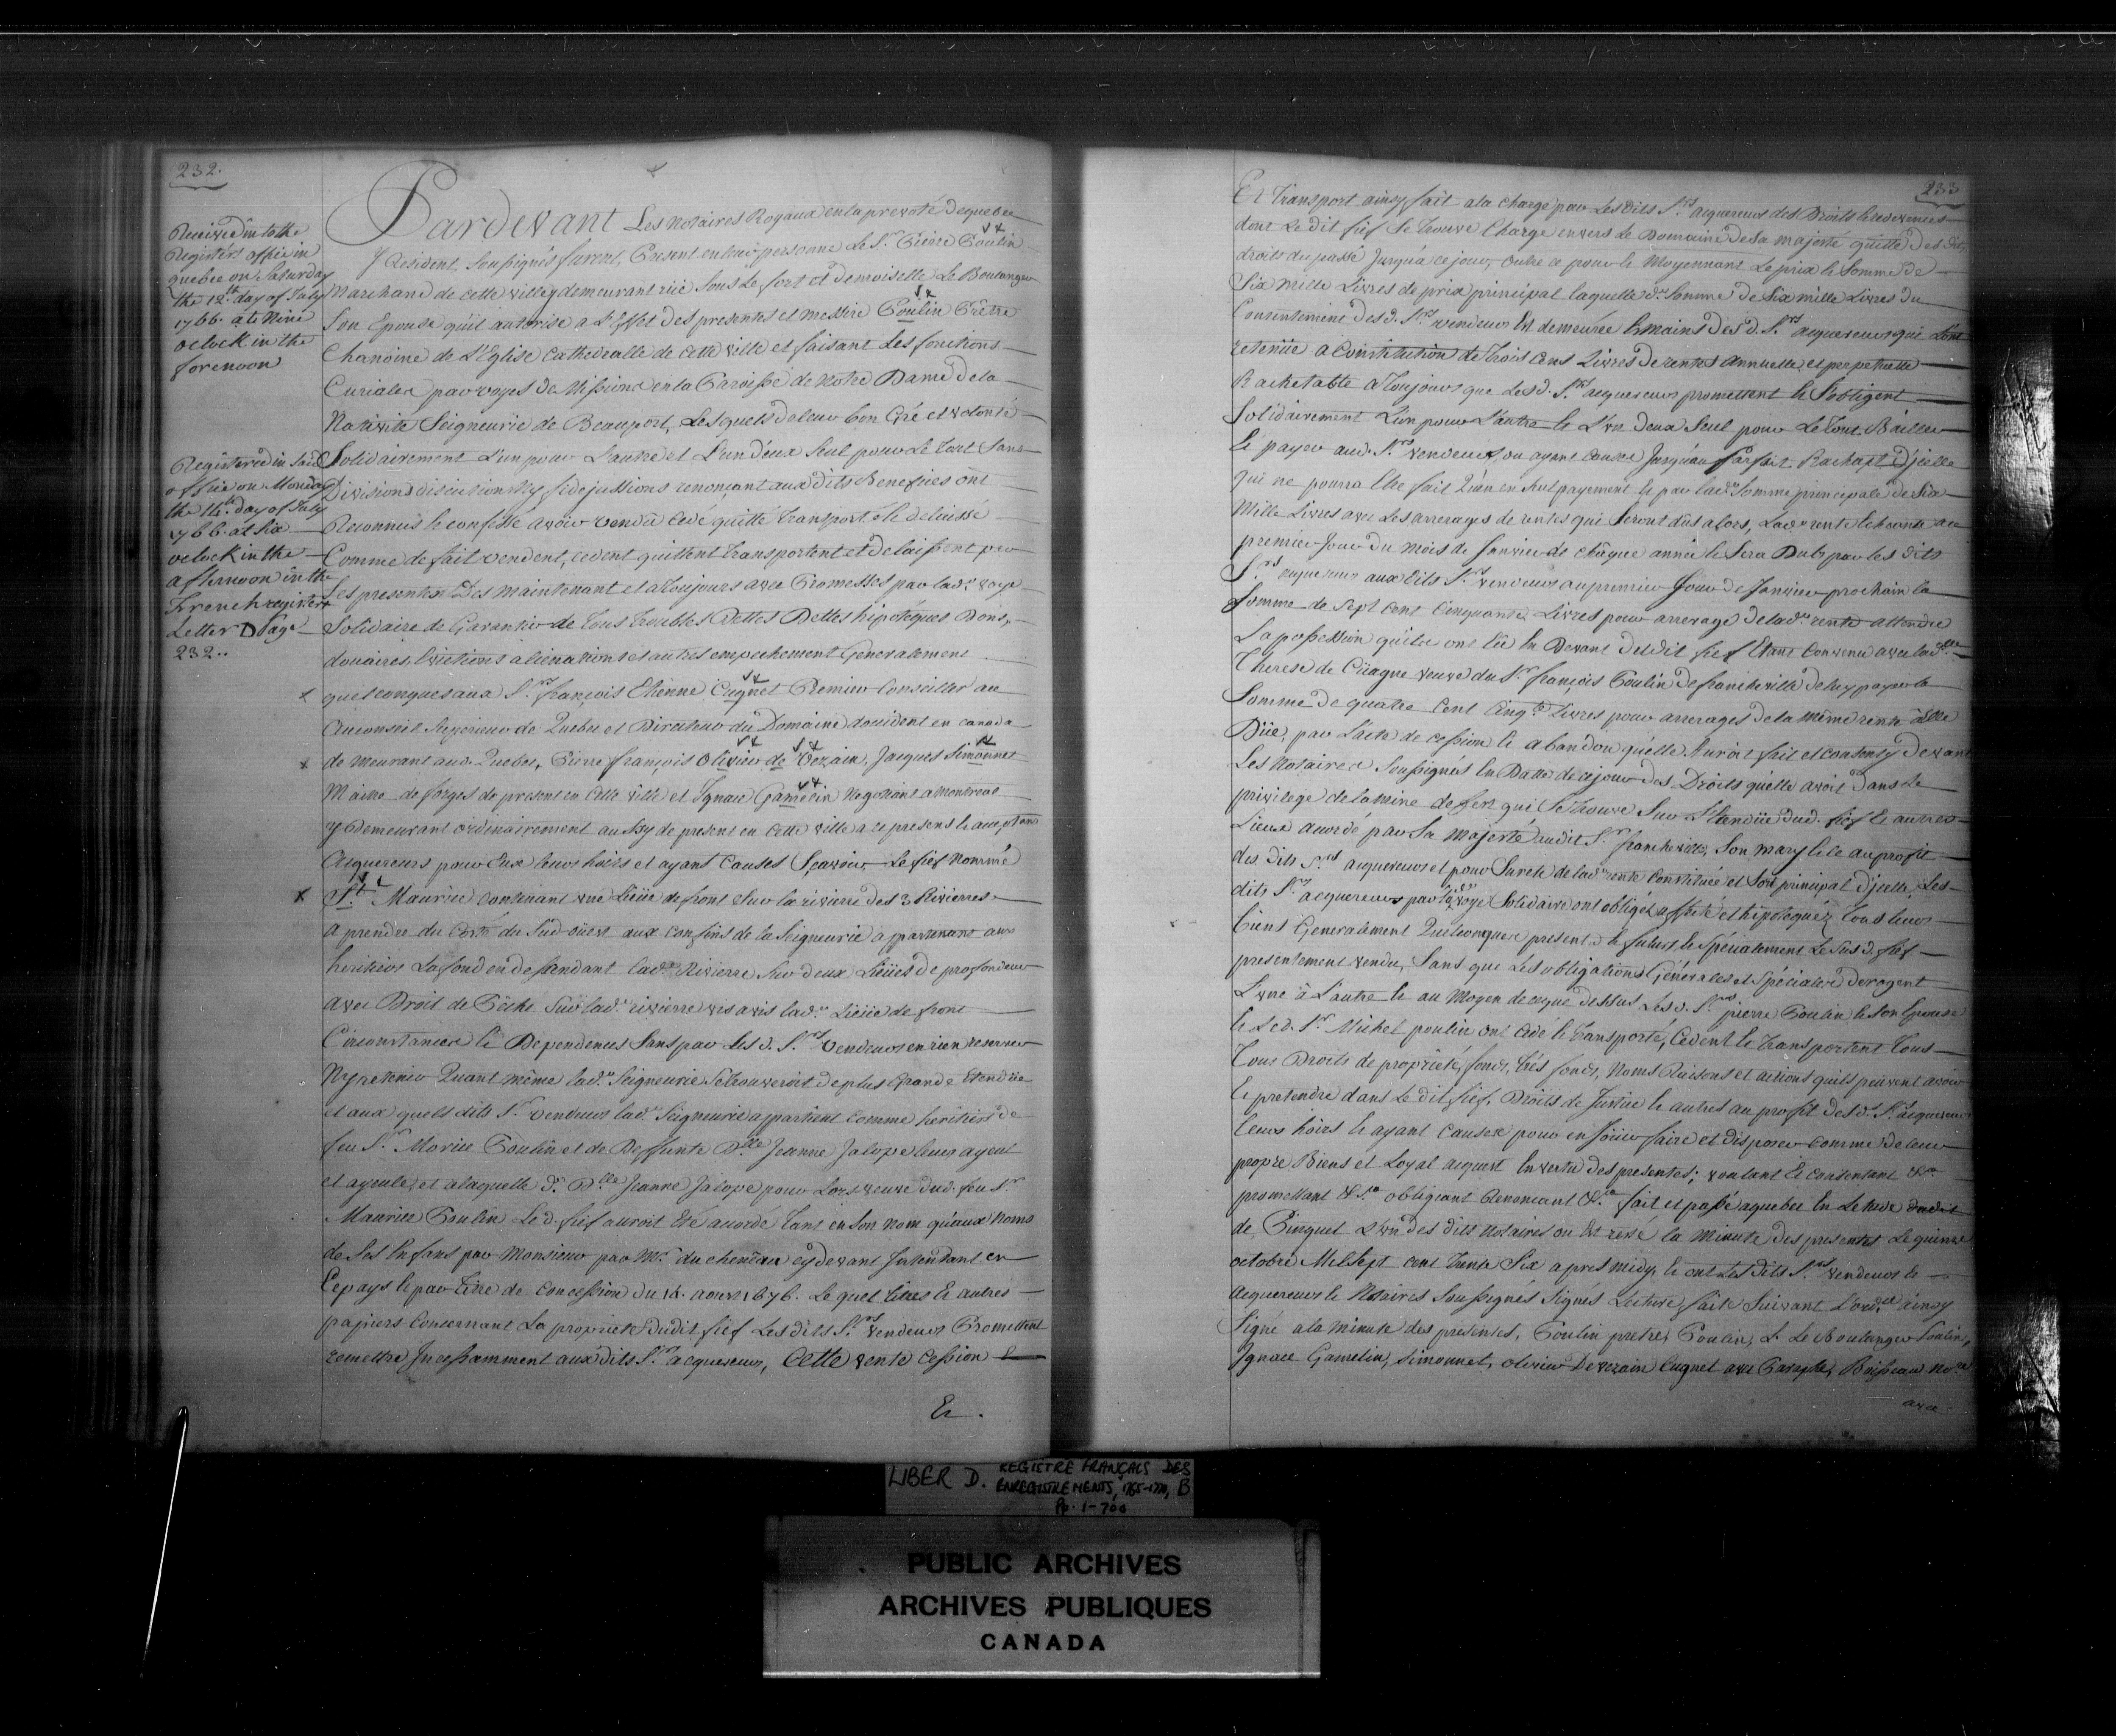 232.
Received into the
Registers office in
quebec on Saturday
the 12th day of July
1766. at Nine
oclock in the
forenoon
Registered in said
office on Monday
the 14th day of July
1766. at Six
oclock in the
afternoon in the
French register
Letter D Page
232..
Pardevant Les Notaires Royaux en la prevoté de quebec
y Resident, Soussignés furent, Present en leurs personne Le Sr. Pierre Poulin
Marchand de cette ville y demeurant rüe Sous Le fort et demoiselle Le Boulanger
Son Epouse qu'il autorise a L'Effet des presentes et Messire Poulin Prêtre
Chanoine de L'Eglise Cathedralle de cette ville et faisant Les fonctions
Curiales par voyes de Missions en la Paroisse de Notre Dame de la
Nativité Seigneurie de Beauport, Lesquels de leur bon Gré et volonté
Solidairement L'un pour L'autre et L'un d'eux Seul pour Le tout Sans
Division discution Ny fidejussions renonçant aux dits Benefices ont
Reconnus & confessé avoir vendu cedé quitté transporté & delaissé
Comme de fait vendent, cedent quittent transportent et delaissent par
Les presentes Des maintenant et a toujours avec Promesses par lade. voye
Solidaire de Garantir de tous troubles Dettes hipoteques Dons,
douaires, Evictions alienations et autres empechement Generalement
quelconques aux Srs. françois Etienne Cugnet Premier Conseiller au
Auconseil Superieur de Quebec et Directeur du Domaine doccident en canada
demeurant aud. Quebec, Pierre françois Olivier de Vezain, Jacques Simonnet
Maitre de forges de present en cette ville et Ignace Gamelin Negotiant a Montreal
y Demeurant ordinairement aussy de present en cette ville a ce presens & acceptans
Acquereurs pour Eux leurs hoirs et ayant Causes Sçavoir Le fief Nommé
St. Maurice contenant une Lieüe de front Sur la riviere des 3 Rivierres
a prendre du Côté du Sud-oüest aux confins de la Seigneurie appartenant aux
heritiers Lafond en desandant lade. Rivierre Sur deux Lieües de profondeur
avec Droit de Pêche Sur lade. rivierre vis avis lade. Lieüe de front
Circonstances & Dependences Sans par Les d. Srs. Vendeurs en rien reserver
Ny retenir Quant même lade. Seigneurie Se trouveroit de plus Grande Etendüe
et aux quels dits Srs. vendeurs lade. Seigneurie appartient comme heritiers de
feu Sr. Morice Poulin et de Deffunte Dlle Jeanne Jalope leurs ayeul
et ayeule, et a laquelle d. Dlle Jeanne Jalope pour Lors veuve dud. feu Sr.
Maurice Poulin Le d. fief auroit Eté accordé tant en Son Nom qu'aux Noms
de Ses Enfans par Monsieur par Mr. du cheneau cy devant Intendant en
Ce pays & par titre de Concession du 14. aoust 1676. Le quel titres & autres
papiers Concernant La propriété dudit fief Les dits Srs. vendeurs Promettent
remettre Incessamment aux dits Srs. acquereurs, Cette vente Cession &
Et.
233
Et Transport ainsy fait a la charge par Les dits Srs. acquereurs des Droits & redevences
dont Le dit fief Se trouve Chargé envers Le Domaine de Sa majesté quitte Des dits
droits du passé Jusqu'a ce jour, outre ce pour & Moyennant Le prix & Somme De
Six mille Livres de prix principal laquelle de. Somme de Six mille Livres du
Consentement des d. Srs vendeurs Est demeurée Es mains des d. Srs acquereurs qui L'ont
retenüe a Constitution de trois Cens Livres de rentes Annuelle, et perpetuelle
Rachetable a Toujours que Les d. Srs. acquereurs promettent & S'obligent
Solidairement L'un pour L'autre & L'un d'eux Seul pour Le tout Bailler
& payer aud. Srs. Vendeurs, ou ayant Cause Jusqu'au Parfait Rachapt d'icelle
qui ne pourra Etre fait Qu'en un Seul payement & par lade. Somme principale de Six
Mille Livres avec Les arrerages de rentes qui Seront dûs alors, Lade. rente Echeante au
premier Jour du mois de Janvier de chaque année & Sera Dub par les dits
Srs. acquereurs aux dits Srs. vendeurs au premier Jour de Janvier prochain la
Somme de Sept cent Cinquante Livres pour arrerage de lade. rente attendre
La possession qu'ils ont Eü cy Devant dudit fief Etant Convenu avec lade. Dlle
Therese de Cüagne veuve du Sr. françois Poulin de francheville de luy payer la
Somme de quatre Cent Cinqte Livres pour arrerages de la même rente a Elle
Düe, par L'acte de cession & abandon qu'elle Auroit fait et consenty Devant
Les Notaires Soussignés En Datte de ce jour des Droits qu'elle avoit dans Le
privilege de la mine de fer qui Se trouve Sur L'Etendüe dud. fief & autres
Lieux accordé par Sa Majesté audit Sr. francheville, Son mary & le au profit
des dits Srs acquereurs et pour Sureté de lade. rente constituée et Son principal d'icelle, Les
dits Srs. acquereurs par lade. voye Solidaire ont obligéz affecté et hipotequéz tous leurs
biens Generalement Quelconques presents & futurs & Spécialement Le Sus d. fief
presentement vendu, Sans que Les obligations Générales et Spéciales Derogent
L'une à L'autre & au Moyen de ce que dessus Les d. Srs pierre Poulin & Son Epouse
& Le d. Sr Michel poulin ont Cédé & Transporté, Cedent & Transportent tous
Tous Droits de proprieté, fonds, trés fonds, Noms Raisons et actions qu'ils peuvent avoir
& pretendre dans Le dit fief, Droits de Justice & autres au profit des d. Srs. acquereurs
Leurs hoirs & ayant Causes pour en Joüir faire et disposer Comme de leur
propre Biens et Loyal acquest En vertu des presentes; voulant & Consentant &a
promettant &a. obligeant Renoncant &a. fait et passé aquebec En L'etude dudit
de Pinguet L'un des dits Notaires ou Est resté la Minute des presentes Le quinze
octobre Mil Sept cent trente Six apres midy, & ont Les dits Srs. Vendeurs &
acquereurs & Notaires Soussignés Signés Lecture faite Suivant L'ordce ainsy
Signé a la Minute des presentes, Poulin pretre, Poulin, L. Le Boulanger Poulin,
Ignace Gamelin, Simonnet, olivier De vezain Cugnet avec Paraphe, Boisseau Nore
avec
LIBER D. REGISTRE FRANÇAIS DES
ENREGISTREMENTS, 1765-1770, B
Pp. 1-700
PUBLIC ARCHIVES
ARCHIVES PUBLIQUES
CANADA